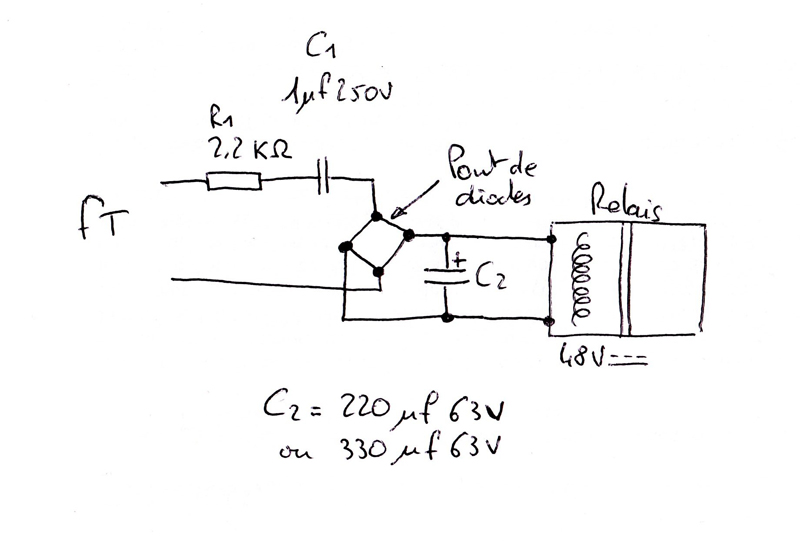 C1
1µf 250V
R1
2,2 KΩ
Pont de
diodes
Relais
fT
+
C2
48V
C2 = 220 µf 63V
ou 330 µf 63V